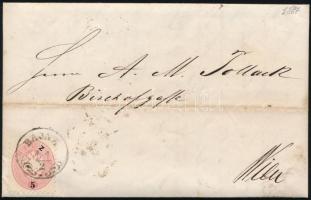 Herrn A. M. Pollack
Bischofgasse
Wien
BAJA
2
5